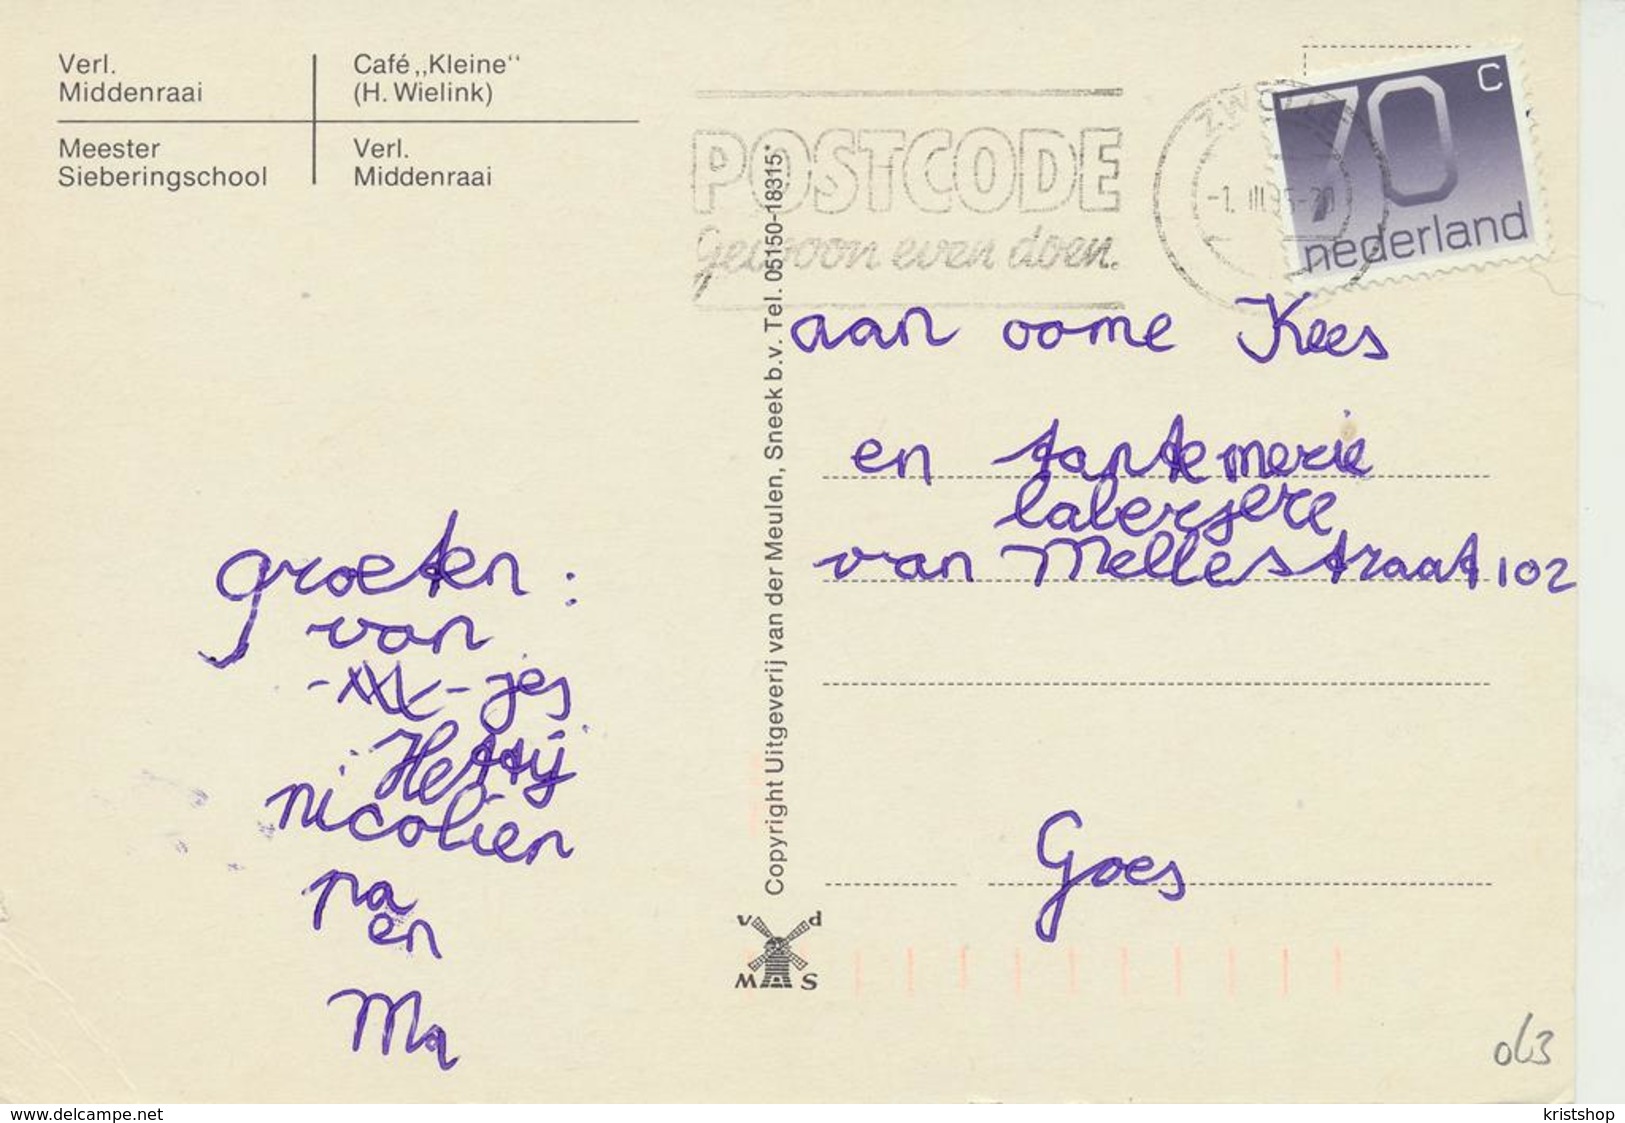 Verl.
Middenraai
Café „Kleine“
(H. Wielink)
Meester
Sieberingschool
Verl.
Middenraai
POSTCODE
Gewoon even doen.
-1. III
70 C
nederland
aan oome Kees
en tantemerie
laberjere
van Mellestraat 102
Goes
groeten :
van
-jes
Hettij
nicolien
pa
en
Ma
Copyright Uitgeverij van der Meulen, Sneek b.v. Tel. 05150-18315*
v d
M S
www.delcampe.net
kristshop